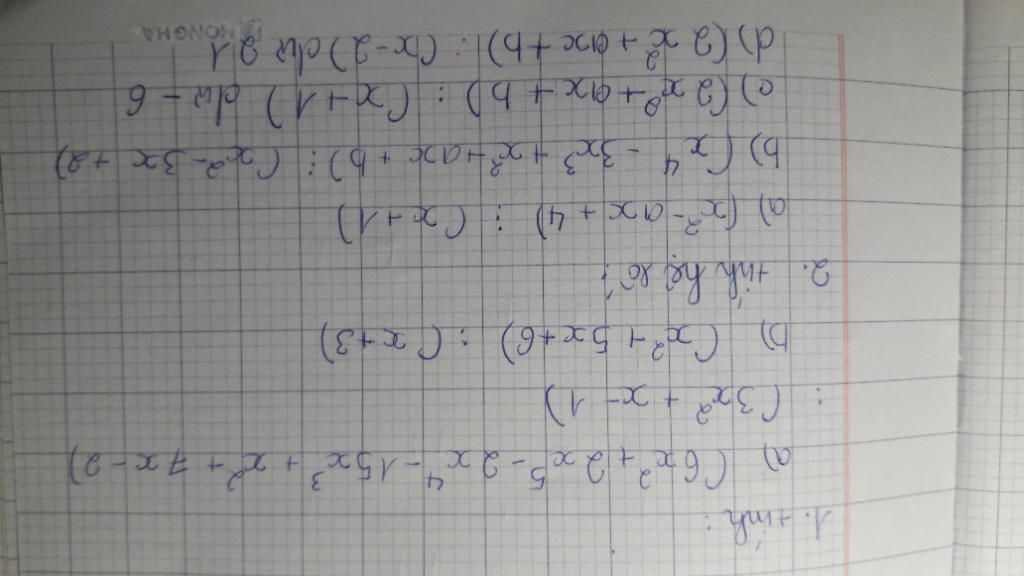 1. tính :
a) (6x² + 2x⁵ - 2x⁴ - 15x³ + x² + 7x - 2)
: (3x² + x - 1)
b) (x² + 5x + 6) : (x + 3)
2. tính hệ số :
a) (x² - ax + 4) ⋮ (x + 1)
b) (x⁴ - 3x³ + x² + ax + b) ⋮ (x² - 3x + 2)
c) (2x² + ax + b) : (x + 1) dư - 6
d) (2x² + ax + b) : (x - 2) dư 21
HONG HA